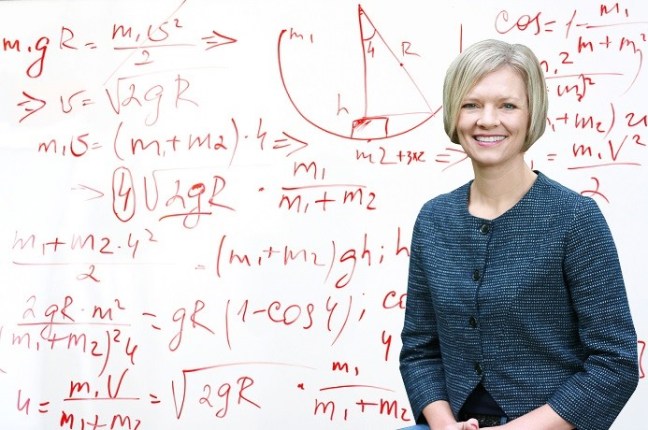 m₁gR = m₁υ²/2 ⇒
⇒ υ = √2gR
m₁υ = (m₁+m₂)·4 ⇒
→ 4 √2gR · m₁/m₁+m₂
m₁+m₂·4²/2 = (m₁+m₂)gh; h
2gR·m²/(m₁+m₂)²4 = gR(1-cos4); co
4
4 = m₁V/m₁+m₂ = √2gR · m₁/m₁+m₂
m₁
4
R
h
m2+
cos = 1- m₁/m+m₂
+m₂)
= m₁V²/2